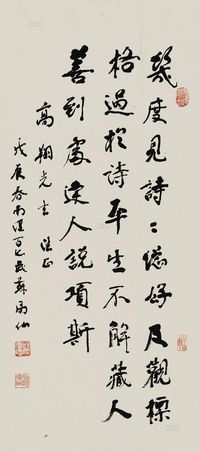 几度見詩〻總好及觀標
格過於詩平生不解藏人
善到處逢人說項斯
高翔先生 法正
戊辰春南邨